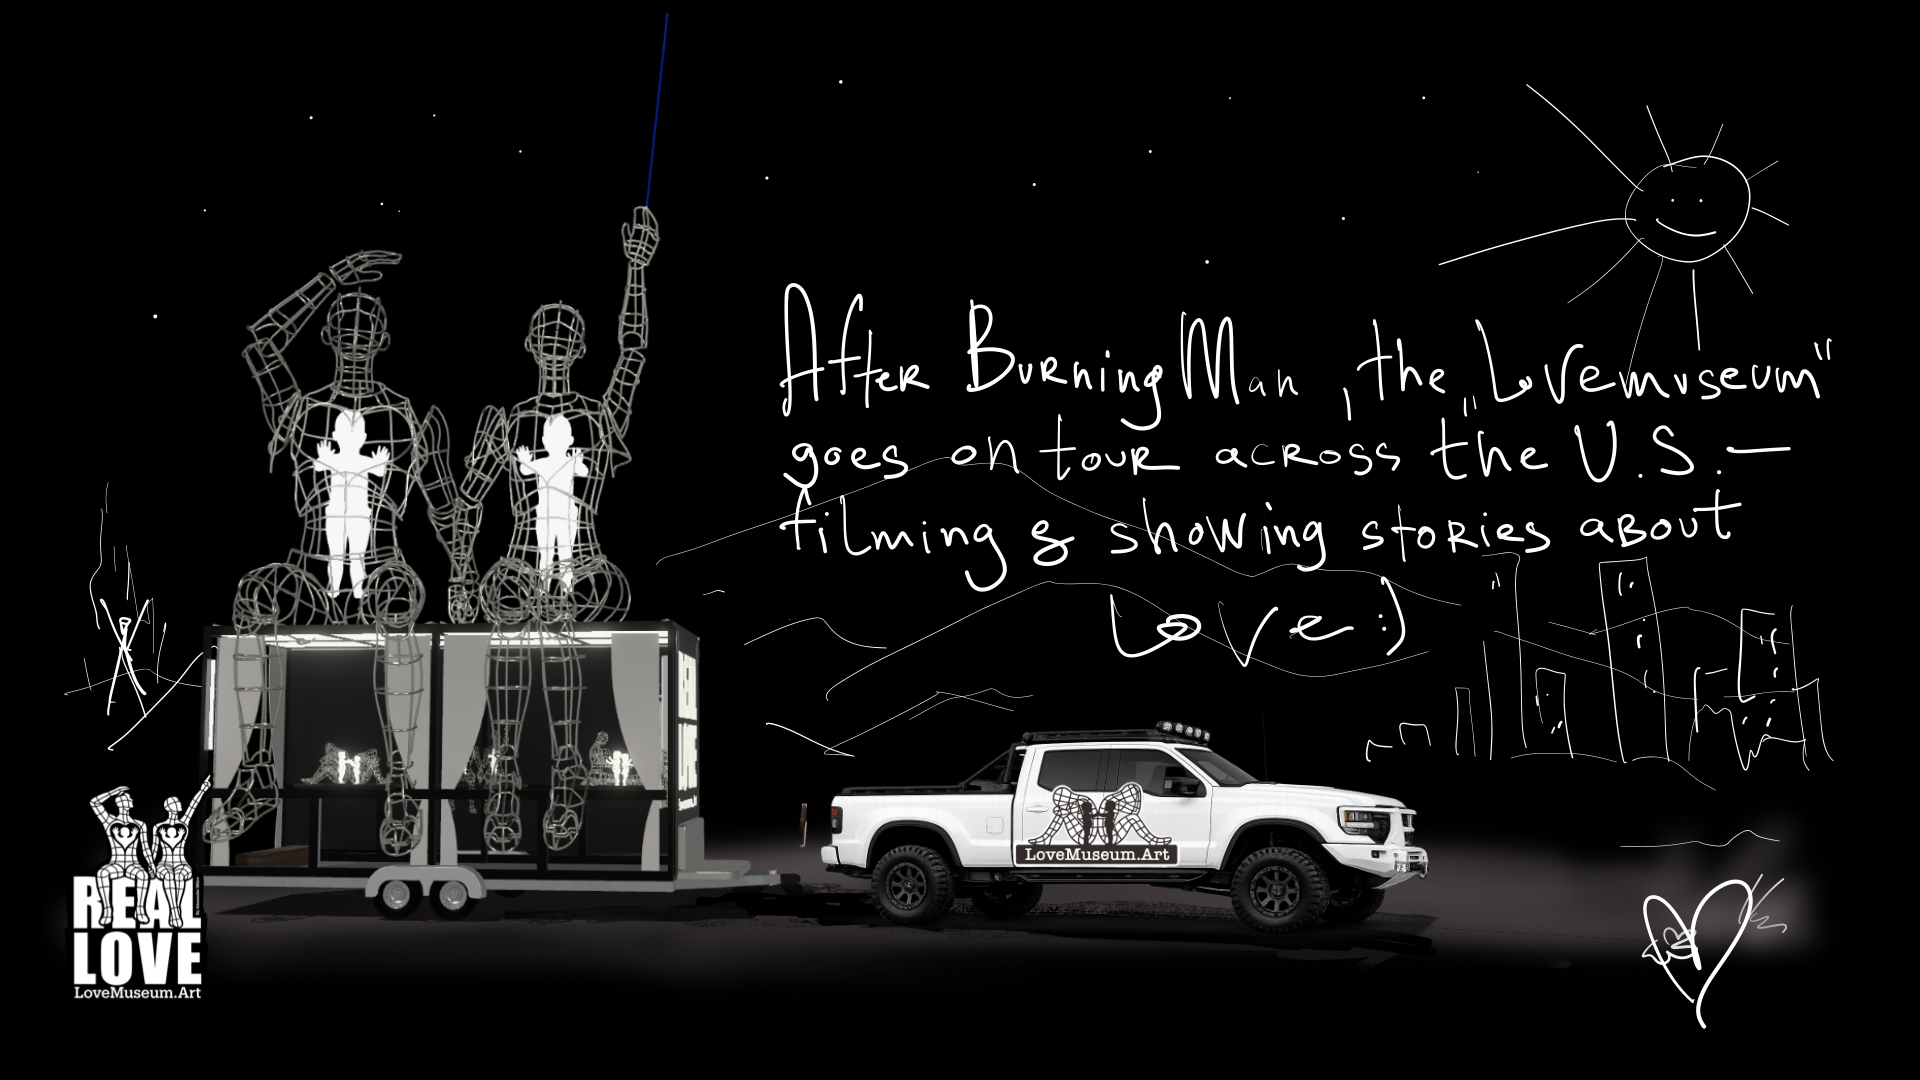 After Burning Man, the „Lovemuseum"
goes on tour across the U.S. —
filming & showing stories about
Love :)
LoveMuseum.Art
REAL
LOVE
LoveMuseum.Art